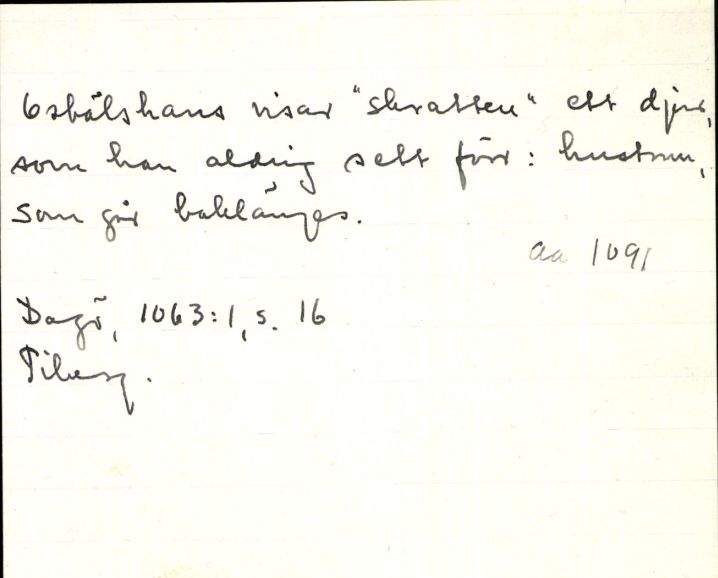 Osbålshans visar "skratten" ett djur,
som han aldrig sett förr: hustrun,
som går baklänges.
aa 1091
Dagö, 1063:1, s. 16
Tiberg.